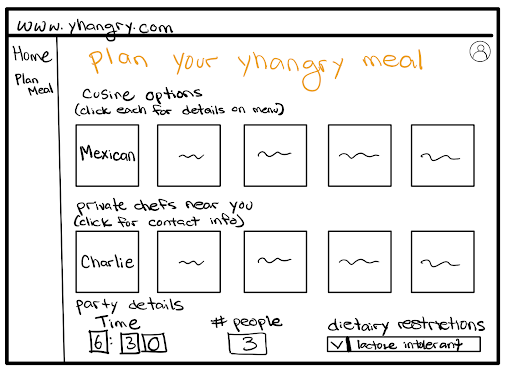 www.yhangry.com
Home
Plan Meal
plan your yhangry meal
cusine options
(click each for details on menu)
Mexican
private chefs near you
(click for contact info)
Charlie
party details
Time
# people
dietairy restrictions
6:30
3
lactose intolerant